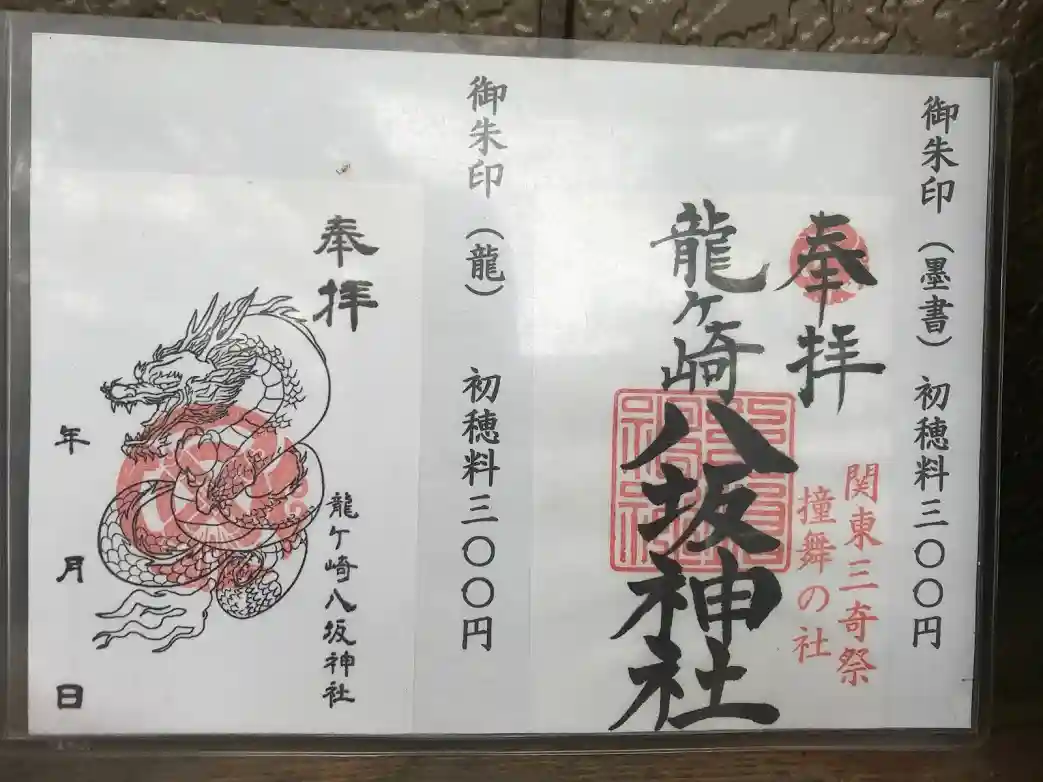 御朱印（墨書）初穂料三〇〇円
奉拝
関東三奇祭
撞舞の社
龍ヶ崎八坂神社
御朱印（龍）　初穂料三〇〇円
奉拝
龍ケ崎八坂神社
年　月　日